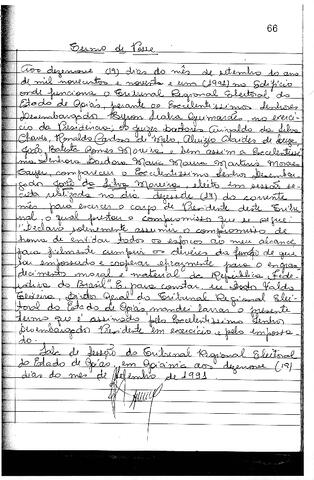 66
Termo de Posse
Aos dezenove (19) dias do mês de setembro do ano
de mil novecentos e noventa e um (1991) no Edifício
onde funciona o Tribunal Regional Eleitoral do
Estado de Goiás, perante os Excelentíssimos Senhores
Desembargador Byron Seabra Guimarães, no exercí-
cio da Presidência, os juízes doutores da Silva
Chaves, Ronaldo Cardoso de Melo, Aluizio de
João Batista Gomes Moreira e bem assim a Excelentíssi-
ma Senhora Doutora Maria Martins Moraes
compareceu o Excelentíssimo Senhor Desembar-
gador João da Silva Moreira, eleito em sessão se
creta realizada no dia dezoito (18) do corrente
mês para exercer o cargo de Presidente deste Tribu-
nal, o qual prestou o compromisso que se segue:
"Declaro solenemente assumir o compromisso de
honra de envidar todos os esforços ao meu alcance
para fielmente cumprir os deveres da função de que
fui empossado e cooperar lealmente para o engran
decimento moral e material da República Fede-
rativa do Brasil". E, para constar eu
Teixeira, Diretor Geral do Tribunal Regional Elei-
toral do Estado de Goiás, mandei lavrar o presente
termo que é assinado pelo Excelentíssimo Senhor
Desembargador Presidente em exercício e pelo empossa-
do.
Sala de Sessões do Tribunal Regional Eleitoral
do Estado de Goiás, em Goiânia aos dezenove (19)
dias do mês de setembro de 1991